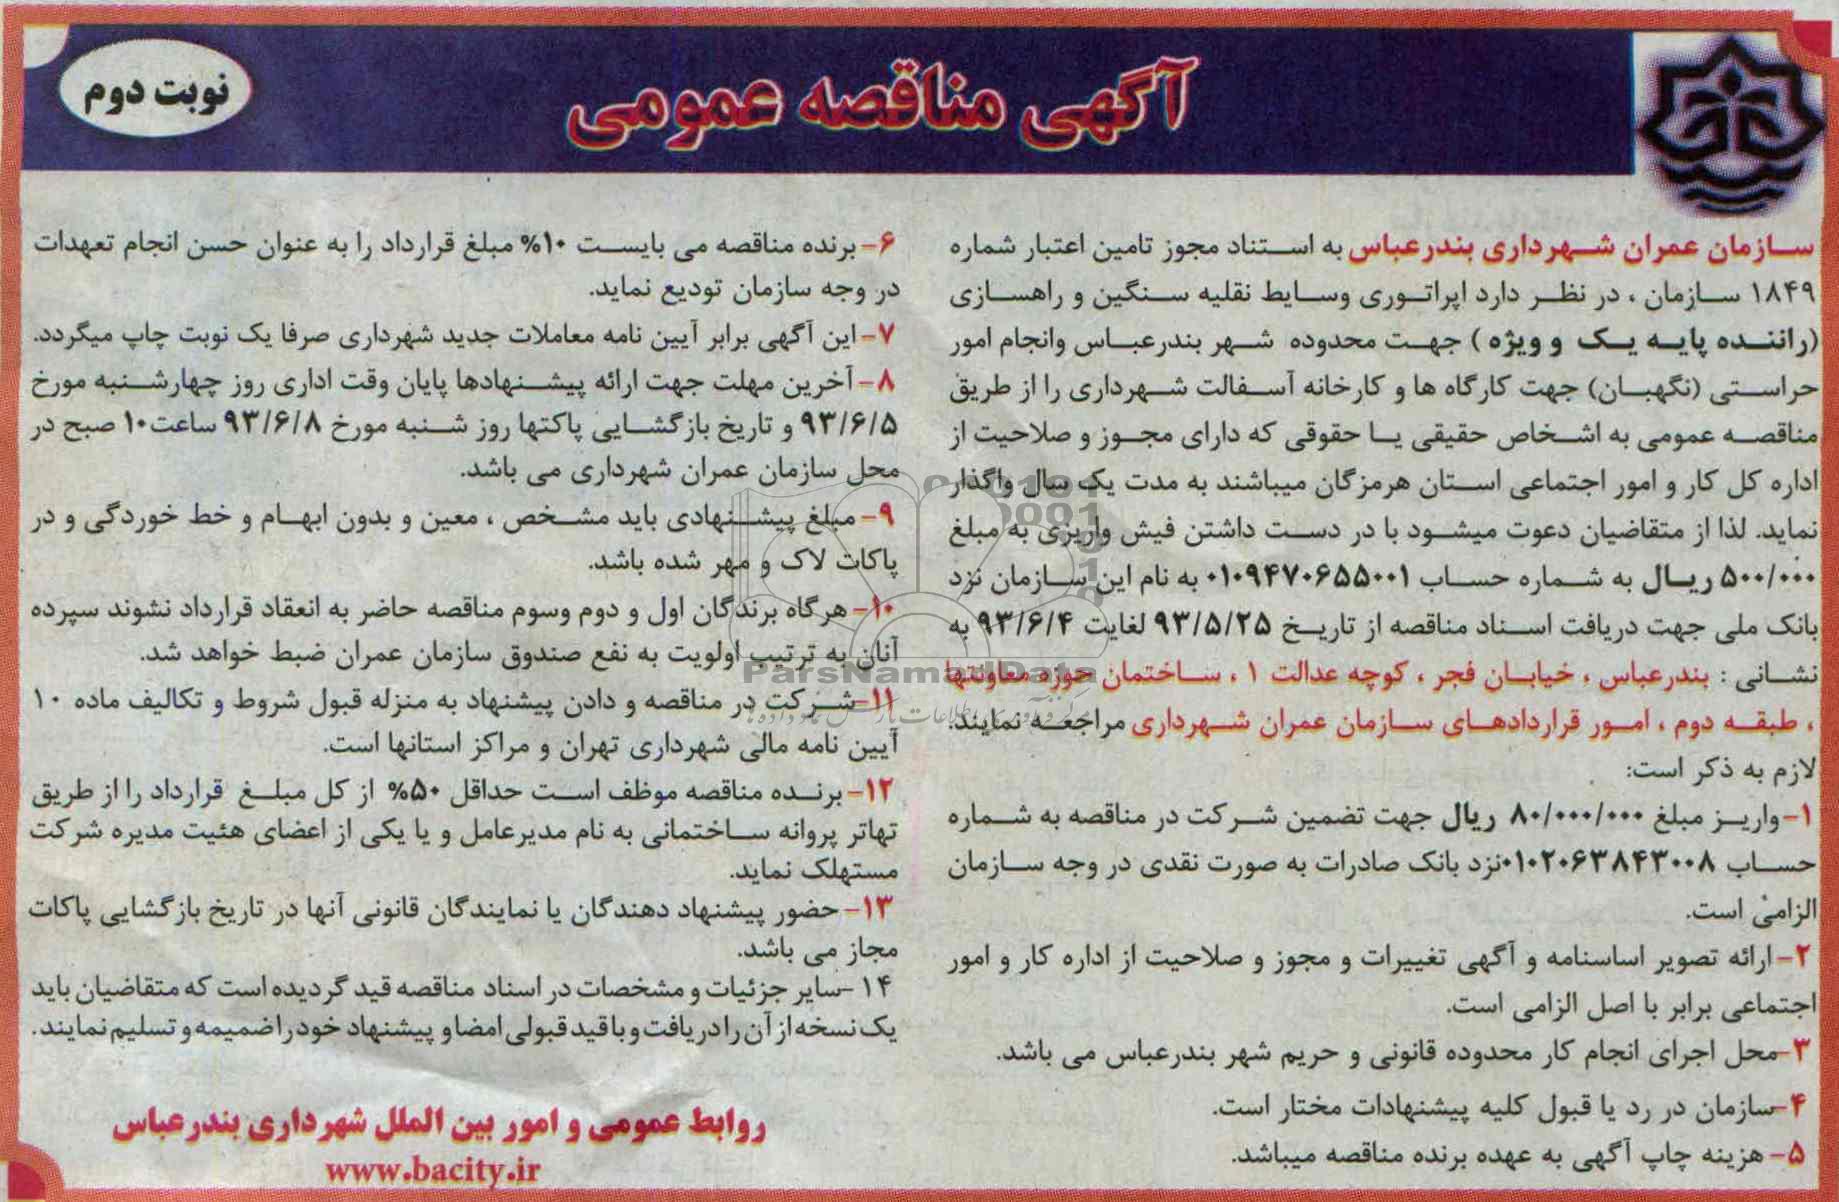 آگهی مناقصه عمومی
نوبت دوم
سازمان عمران شهرداری بندرعباس به استناد مجوز تامین اعتبار شماره
۱۸۴۹ سازمان ، در نظر دارد اپراتوری وسایط نقلیه سنگین و راهسازی
(راننده پایه یک و ویژه ) جهت محدوده شهر بندرعباس وانجام امور
حراستی (نگهبان) جهت کارگاه ها و کارخانه آسفالت شهرداری را از طریق
مناقصه عمومی به اشخاص حقیقی یا حقوقی که دارای مجوز و صلاحیت از
اداره کل کار و امور اجتماعی استان هرمزگان میباشند به مدت یک سال واگذار
نماید. لذا از متقاضیان دعوت میشود با در دست داشتن فیش واریزی به مبلغ
۵۰۰/۰۰۰ ریال به شماره حساب ۰۱۰۹۴۷۰۶۵۵۰۰۱ به نام این سازمان نزد
بانک ملی جهت دریافت اسناد مناقصه از تاریخ ۹۳/۵/۲۵ لغایت ۹۳/۶/۴ به
نشانی : بندرعباس ، خیابان فجر ، کوچه عدالت ۱ ، ساختمان حوزه معاونتها
، طبقه دوم ، امور قراردادهای سازمان عمران شهرداری مراجعه نمایند.
لازم به ذکر است:
۱- واریز مبلغ ۸۰/۰۰۰/۰۰۰ ریال جهت تضمین شرکت در مناقصه به شماره
حساب ۰۱۰۲۰۶۳۸۴۳۰۰۸ نزد بانک صادرات به صورت نقدی در وجه سازمان
الزامی است.
۲- ارائه تصویر اساسنامه و آگهی تغییرات و مجوز و صلاحیت از اداره کار و امور
اجتماعی برابر با اصل الزامی است.
۳- محل اجرای انجام کار محدوده قانونی و حریم شهر بندرعباس می باشد.
۴- سازمان در رد یا قبول کلیه پیشنهادات مختار است.
۵- هزینه چاپ آگهی به عهده برنده مناقصه میباشد.
۶- برنده مناقصه می بایست ۱۰% مبلغ قرارداد را به عنوان حسن انجام تعهدات
در وجه سازمان تودیع نماید.
۷- این آگهی برابر آیین نامه معاملات جدید شهرداری صرفا یک نوبت چاپ میگردد.
۸- آخرین مهلت جهت ارائه پیشنهادها پایان وقت اداری روز چهارشنبه مورخ
۹۳/۶/۵ و تاریخ بازگشایی پاکتها روز شنبه مورخ ۹۳/۶/۸ ساعت ۱۰ صبح در
محل سازمان عمران شهرداری می باشد.
۹- مبلغ پیشنهادی باید مشخص ، معین و بدون ابهام و خط خوردگی و در
پاکات لاک و مهر شده باشد.
۱۰- هرگاه برندگان اول و دوم وسوم مناقصه حاضر به انعقاد قرارداد نشوند سپرده
آنان به ترتیب اولویت به نفع صندوق سازمان عمران ضبط خواهد شد.
۱۱- شرکت در مناقصه و دادن پیشنهاد به منزله قبول شروط و تکالیف ماده ۱۰
آیین نامه مالی شهرداری تهران و مراکز استانها است.
۱۲- برنده مناقصه موظف است حداقل ۵۰% از کل مبلغ قرارداد را از طریق
تهاتر پروانه ساختمانی به نام مدیرعامل و یا یکی از اعضای هئیت مدیره شرکت
مستهلک نماید.
۱۳- حضور پیشنهاد دهندگان یا نمایندگان قانونی آنها در تاریخ بازگشایی پاکات
مجاز می باشد.
۱۴- سایر جزئیات و مشخصات در اسناد مناقصه قید گردیده است که متقاضیان باید
یک نسخه از آن را دریافت و با قید قبولی امضا و پیشنهاد خود را ضمیمه و تسلیم نمایند.
روابط عمومی و امور بین الملل شهرداری بندرعباس
www.bacity.ir
ParsNamadData